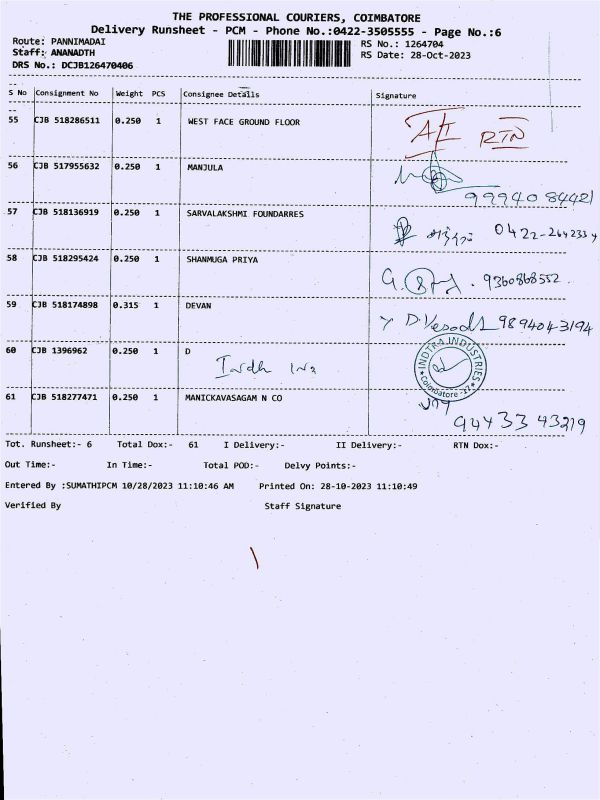 THE PROFESSIONAL COURIERS, COIMBATORE
Delivery Runsheet - PCM - Phone No.:0422-3505555 - Page No.:6
Route: PANNIMADAI
Staff: ANANADTH
DRS No.: DCJB126470406
RS No.: 1264704
RS Date: 28-Oct-2023
S No Consignment No Weight PCS Consignee Details Signature
55 CJB 518286511 0.250 1 WEST FACE GROUND FLOOR RTN
56 CJB 517955632 0.250 1 MANJULA
9994084421
57 CJB 518136919 0.250 1 SARVALAKSHMI FOUNDARRES
58 CJB 518295424 0.250 1 SHANMUGA PRIYA
9360868552
59 CJB 518174898 0.315 1 DEVAN
9894043194
60 CJB 1396962 0.250 1 D
INDTRA INDUSTRIES
Coimbatore - 17
61 CJB 518277471 0.250 1 MANICKAVASAGAM N CO
94433 43219
Tot. Runsheet:- 6 Total Dox:- 61 I Delivery:- II Delivery:- RTN Dox:-
Out Time:- In Time:- Total POD:- Delvy Points:-
Entered By :SUMATHIPCM 10/28/2023 11:10:46 AM Printed On: 28-10-2023 11:10:49
Verified By Staff Signature